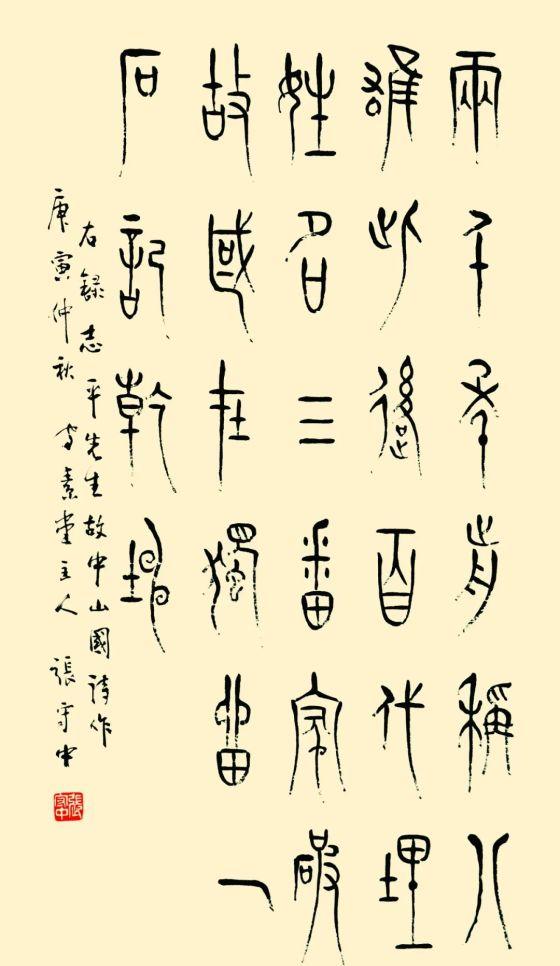 兩千年前稱八
雄此後百代埋
姓名三番家破
故國在獨當一
石記乾坤
右錄志平先生故中山國詩作
庚寅仲秋 守素堂主人 張守中